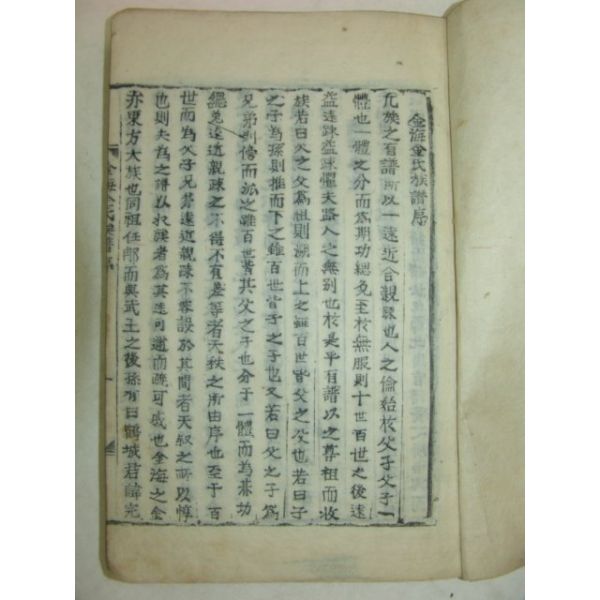 金海金氏族譜序
凡族之有譜所以一遠近合親踈也人之倫始於父子父子一
體也一體之分而爲期功緦免至於無服則十世百世之後遠
益遠踈益踈懼夫路人之無別也於是乎有譜以之尊祖而收
族若曰父之父爲祖則溯而上之雖百世皆父之父也若曰子
之子爲孫則推而下之雖百世皆子之子也又若曰父之子爲
兄弟則傍而派之雖百世皆其父之子也分于一體而爲朞功
緦免遠近親踈之不得不有差等者天秩之所由序也至于百
世而爲父子兄弟遠近親踈不容設於其間者天叙之所以惇
也則夫爲之譜以收族者爲其遠可邇而踈可戚也金海之金
亦東方大族也同祖任那而興武王之後孫有曰鶴城君諱完
金海金氏族譜序